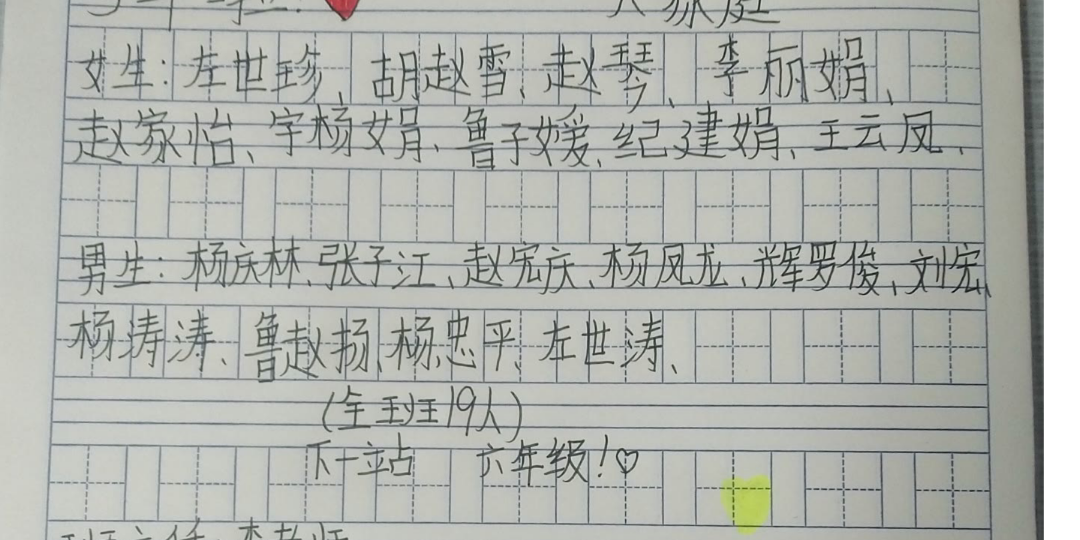 大家庭
女生：左世珍、胡赵雪、赵琴、李丽娟、
赵家怡、字杨娟、鲁子媛、纪建娟、王云凤、
男生：杨庆林、张子江、赵宏庆、杨凤龙、辉罗俊、刘宏、
杨涛涛、鲁赵扬、杨忠平、左世涛、
（全班19人）
下一站 六年级！♡
班主任：李老师